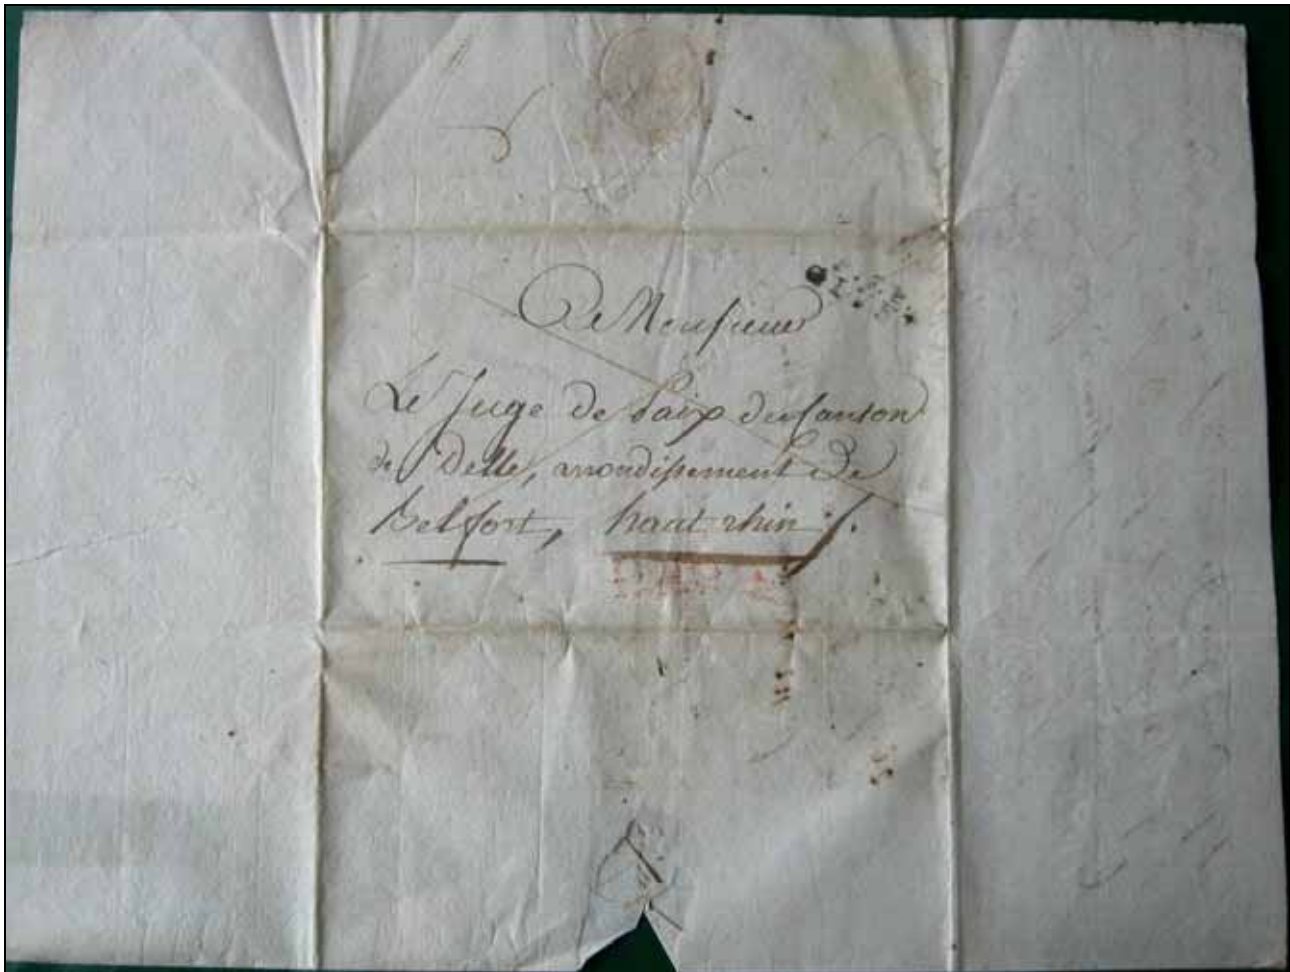 A Monsieur
Le Juge de Paix du Canton
de Delle, arrondissement De
Belfort, haut rhin